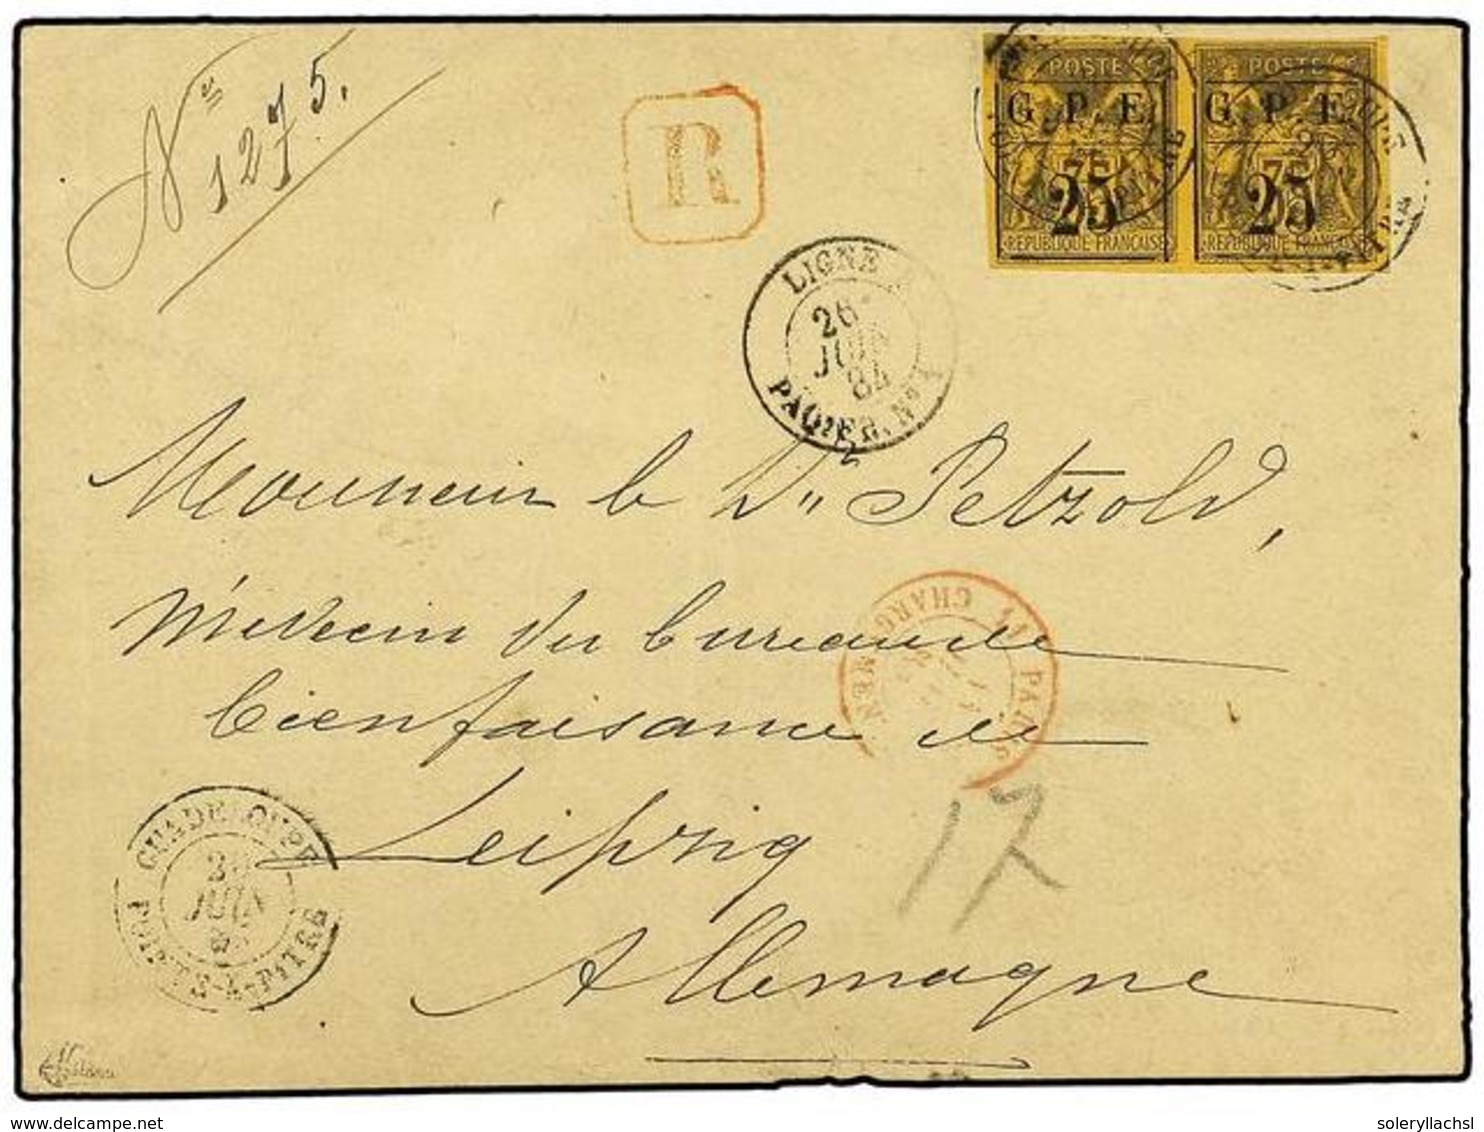 No 1275.
R
POSTES
G. P. E
25
REPUBLIQUE FRANÇAISE
POSTES
G. P. E
25
REPUBLIQUE FRANÇAISE
LIGNE
26
JUIN
84
PAQ. FR. No
Monsieur le Dr Petzold,
Médecin du bureau de
bienfaisance de
Leipzig
Allemagne
PARIS
CHARGEMEN
17
GUADELOUPE
JUIN
POINTE-A-PITRE
soleryllachsl